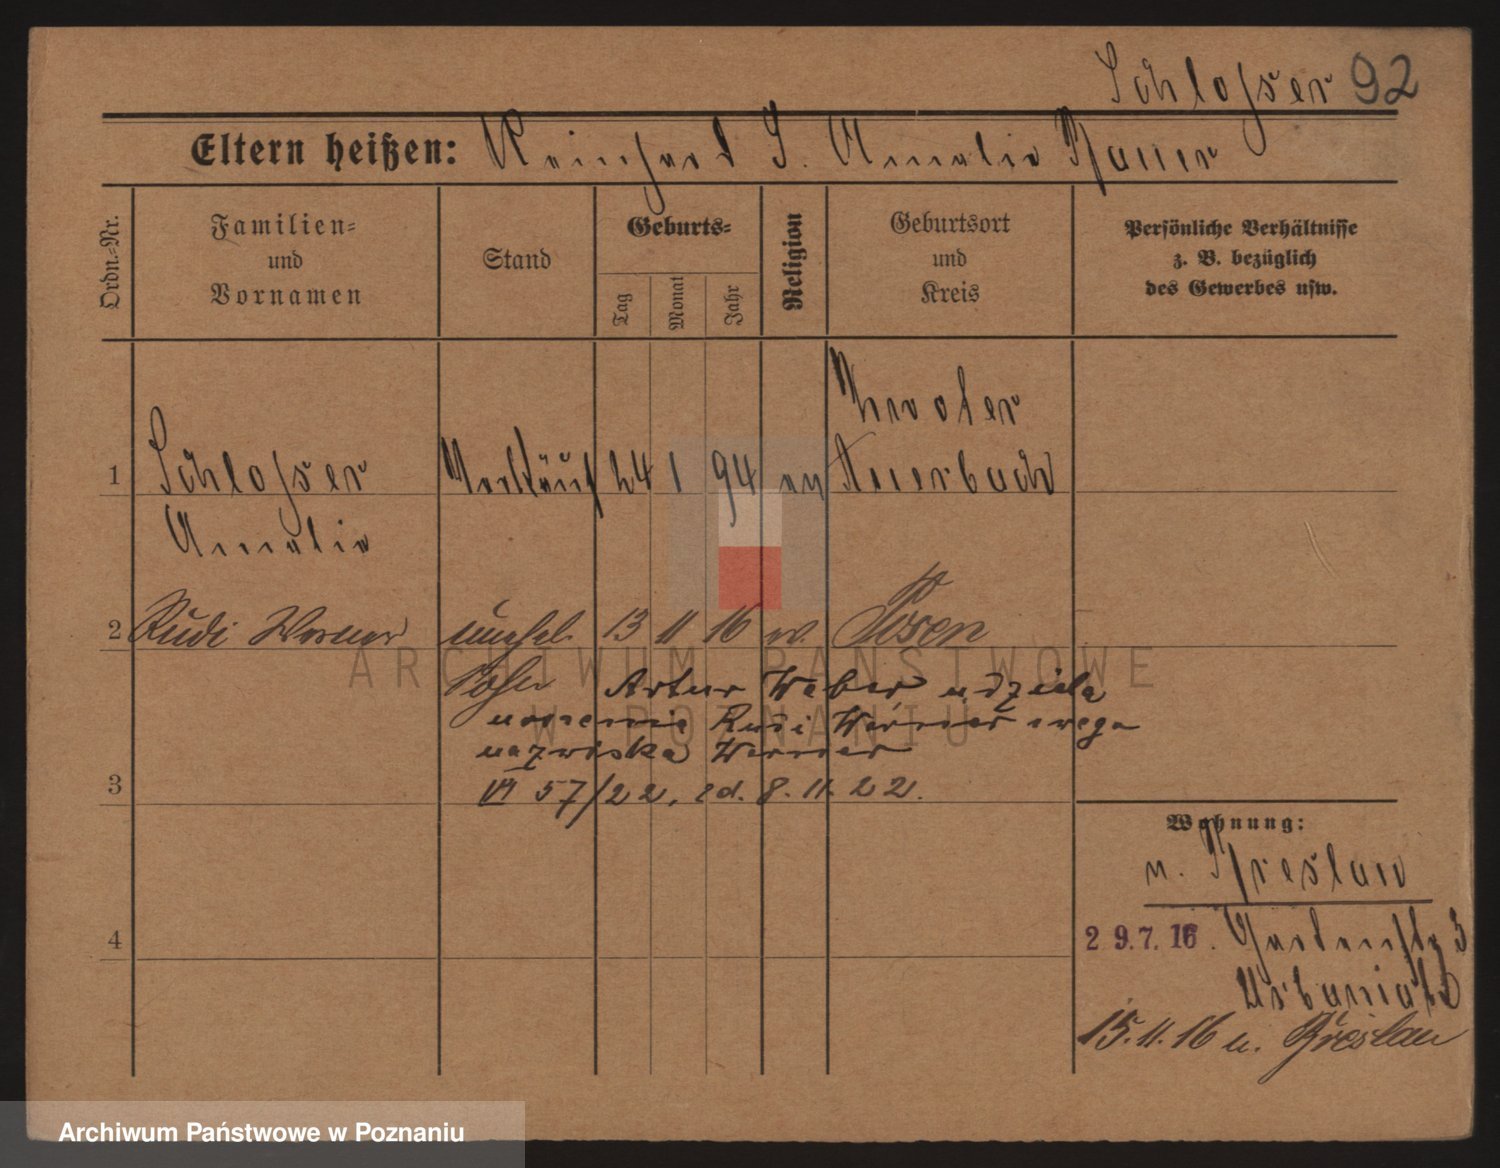 Schlosser 92
Eltern heißen: Reinhard S. Amalie Bauer
Ordn.=Nr.
Familien=
und
Vornamen
Stand
Geburts=
Tag
Monat
Jahr
Religion
Geburtsort
und
Kreis
Persönliche Verhältnisse
z. B. bezüglich
des Gewerbes usw.
1 Schlosser Verkäuf 24 1 94 ev Auerbach
Amalie
2 Rudi Werner unehel. 13 11 16 ev. Posen
Sohn Artur Weber udziela
Rudi Werner
nazwiska Werner
VI 57/22, zd. 8. 11. 22.
3
4
Wohnung:
n. Breslau
29.7.16. Gartenstr 3
Urbaniak
15. 11. 16 n. Breslau
ARCHIWUM PAŃSTWOWE
W POZNANIU
Archiwum Państwowe w Poznaniu